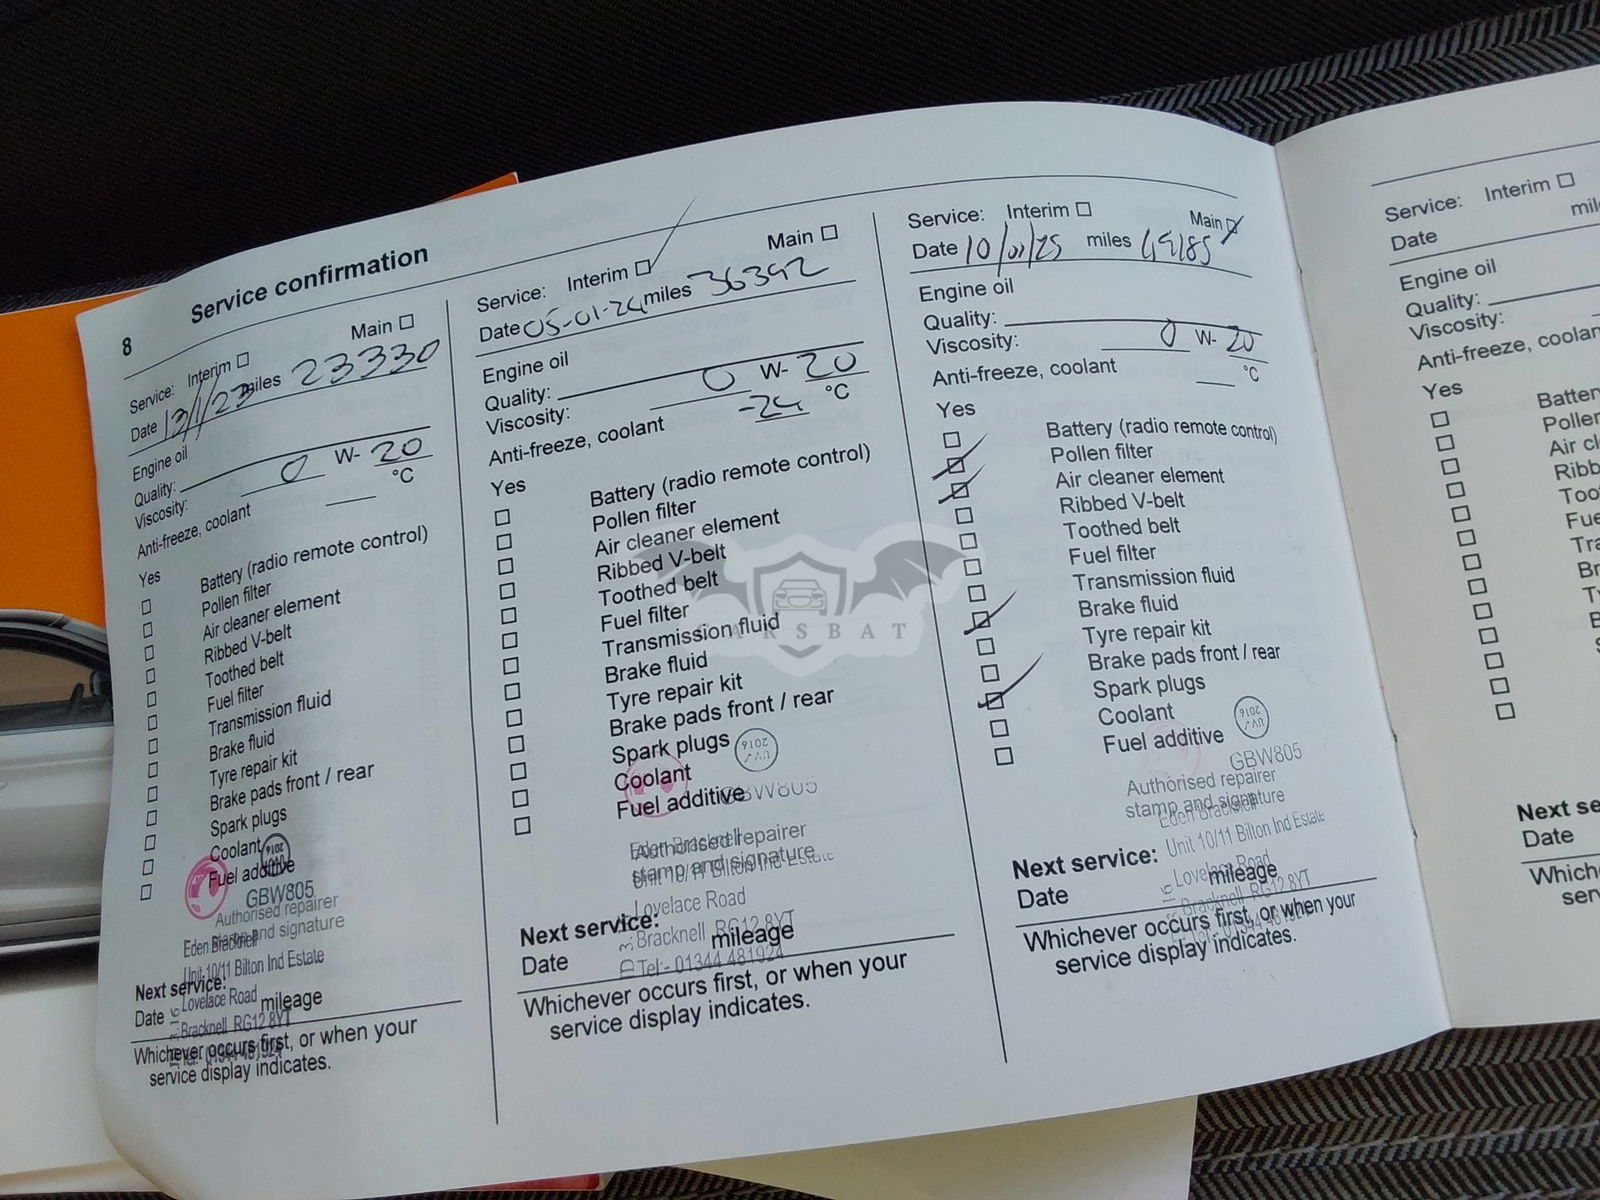 8
Service confirmation
Service: Interim Main
Date 13/1/23 miles 23330
Engine oil
Quality:
Viscosity: 0 W- 20
Anti-freeze, coolant °C
Yes
Battery (radio remote control)
Pollen filter
Air cleaner element
Ribbed V-belt
Toothed belt
Fuel filter
Transmission fluid
Brake fluid
Tyre repair kit
Brake pads front / rear
Spark plugs
Coolant
Fuel additive
2016
GBW805
Authorised repairer
stamp and signature
Eden Bracknell
Unit 10/11 Bilton Ind Estate
Lovelace Road
Bracknell RG12 8YT
Tel:- 01344 481924
Next service:
Date mileage
Whichever occurs first, or when your
service display indicates.
Service: Interim Main
Date 05-01-24 miles 36392
Engine oil
Quality:
Viscosity: 0 W- 20
Anti-freeze, coolant -24 °C
Yes
Battery (radio remote control)
Pollen filter
Air cleaner element
Ribbed V-belt
Toothed belt
Fuel filter
Transmission fluid
Brake fluid
Tyre repair kit
Brake pads front / rear
Spark plugs
Coolant
Fuel additive
2016
GBW805
Authorised repairer
stamp and signature
Eden Bracknell
Unit 10/11 Bilton Ind Estate
Lovelace Road
Bracknell RG12 8YT
Tel:- 01344 481924
Next service:
Date mileage
Whichever occurs first, or when your
service display indicates.
Service: Interim Main
Date 10/01/25 miles 49185
Engine oil
Quality:
Viscosity: 0 W- 20
Anti-freeze, coolant °C
Yes
Battery (radio remote control)
Pollen filter
Air cleaner element
Ribbed V-belt
Toothed belt
Fuel filter
Transmission fluid
Brake fluid
Tyre repair kit
Brake pads front / rear
Spark plugs
Coolant
Fuel additive
2016
GBW805
Authorised repairer
stamp and signature
Eden Bracknell
Unit 10/11 Bilton Ind Estate
Lovelace Road
Bracknell RG12 8YT
Next service:
Date mileage
Whichever occurs first, or when your
service display indicates.
Service: Interim
Date mil
Engine oil
Quality:
Viscosity:
Anti-freeze, coolan
Yes
Batter
Pollen
Air cl
Ribb
Too
Fue
Tra
Br
Ty
B
Next se
Date
Which
ser
CARSBAT